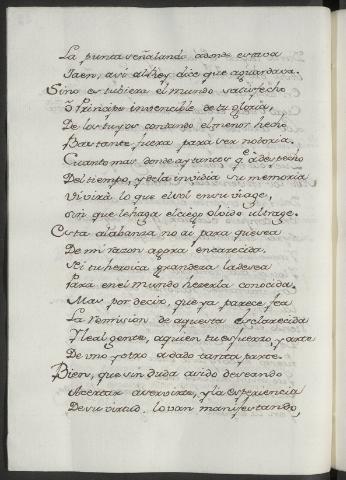 La punta señalando adonde estava
Jaen, avi al Rey dice que aguardava.
Sino estubiera el mundo satisfecho
ô Principe invencible de tu gloria,
De los tuyos contando el menor hecho
Bastante fuera para ser notoria.
Cuanto mas donde ay tantos q̃ a despecho
Del tiempo, y de la invidia su memoria
Vivirà lo que el sol en su viage,
sin que le haga el ciego olvido ultrage.
Esta alabanza no ai para que sea
De mi razon agora encarecida.
Ni tu heroica grandeza la desea
Para en el mundo hazerla conocida.
Mas por decir, que ya parece fea
La remission de aquesta esclarecida
Y leal gente, a quien tu esfuerzo, y arte
De uno y otro a dado tanta parte.
Bien, que sin duda a sido deseando
Acertar a servirte, y la esperiencia
De su virtud. lo van manifestando,